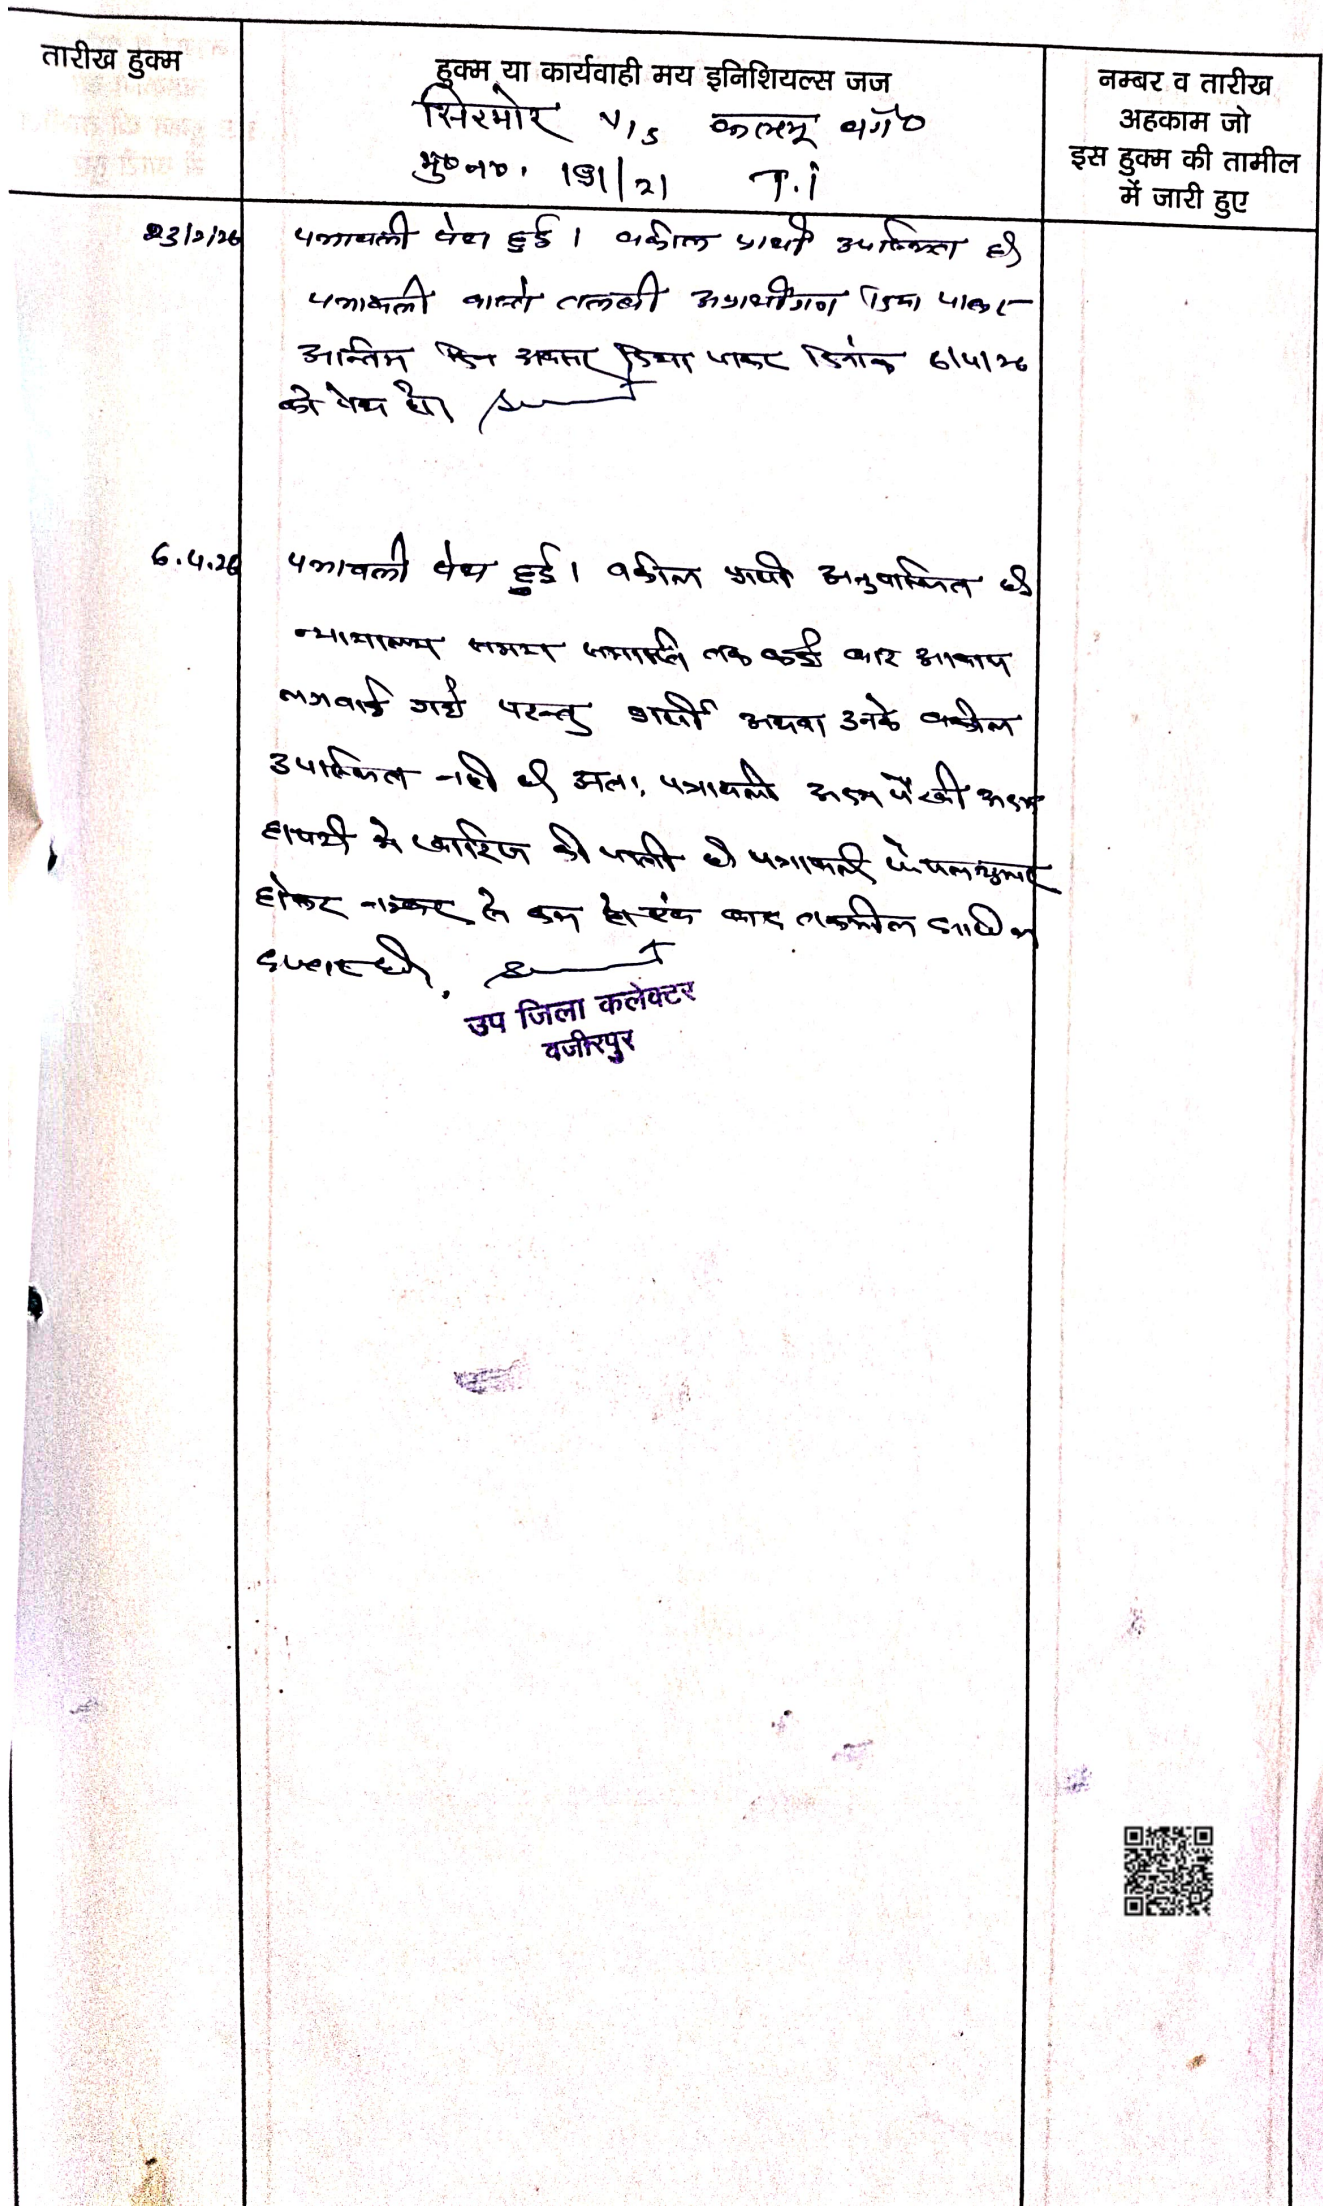 तारीख हुक्म
हुक्म या कार्यवाही मय इनिशियल्स जज
नम्बर व तारीख
अहकाम जो
इस हुक्म की तामील
में जारी हुए
सिरमोर v/s कल्लू वगै०
मु०न०. 191/21 T.i
23/2/26 पत्रावली पेश हुई। वकील प्रार्थी उपस्थित है
पत्रावली वास्ते तलबी अप्रार्थीगण दिया जाकर
अन्तिम अवसर दिया जाकर दिनांक 6/4/26
को पेश हो।
6.4.26 पत्रावली पेश हुई। वकील प्रार्थी अनुपस्थित है
न्यायालय समय समाप्ति तक कई बार आवाज
लगवाई गयी परन्तु प्रार्थी अथवा उनके वकील
उपस्थित नही है अतः पत्रावली अदम पैरवी अदम
हाजरी मे खारिज की जाती है पत्रावली फैसल शुमार
होकर नम्बर से कम हो एवं बाद तकमील दाखिल
दफ्तर हो।
उप जिला कलेक्टर
वजीरपुर